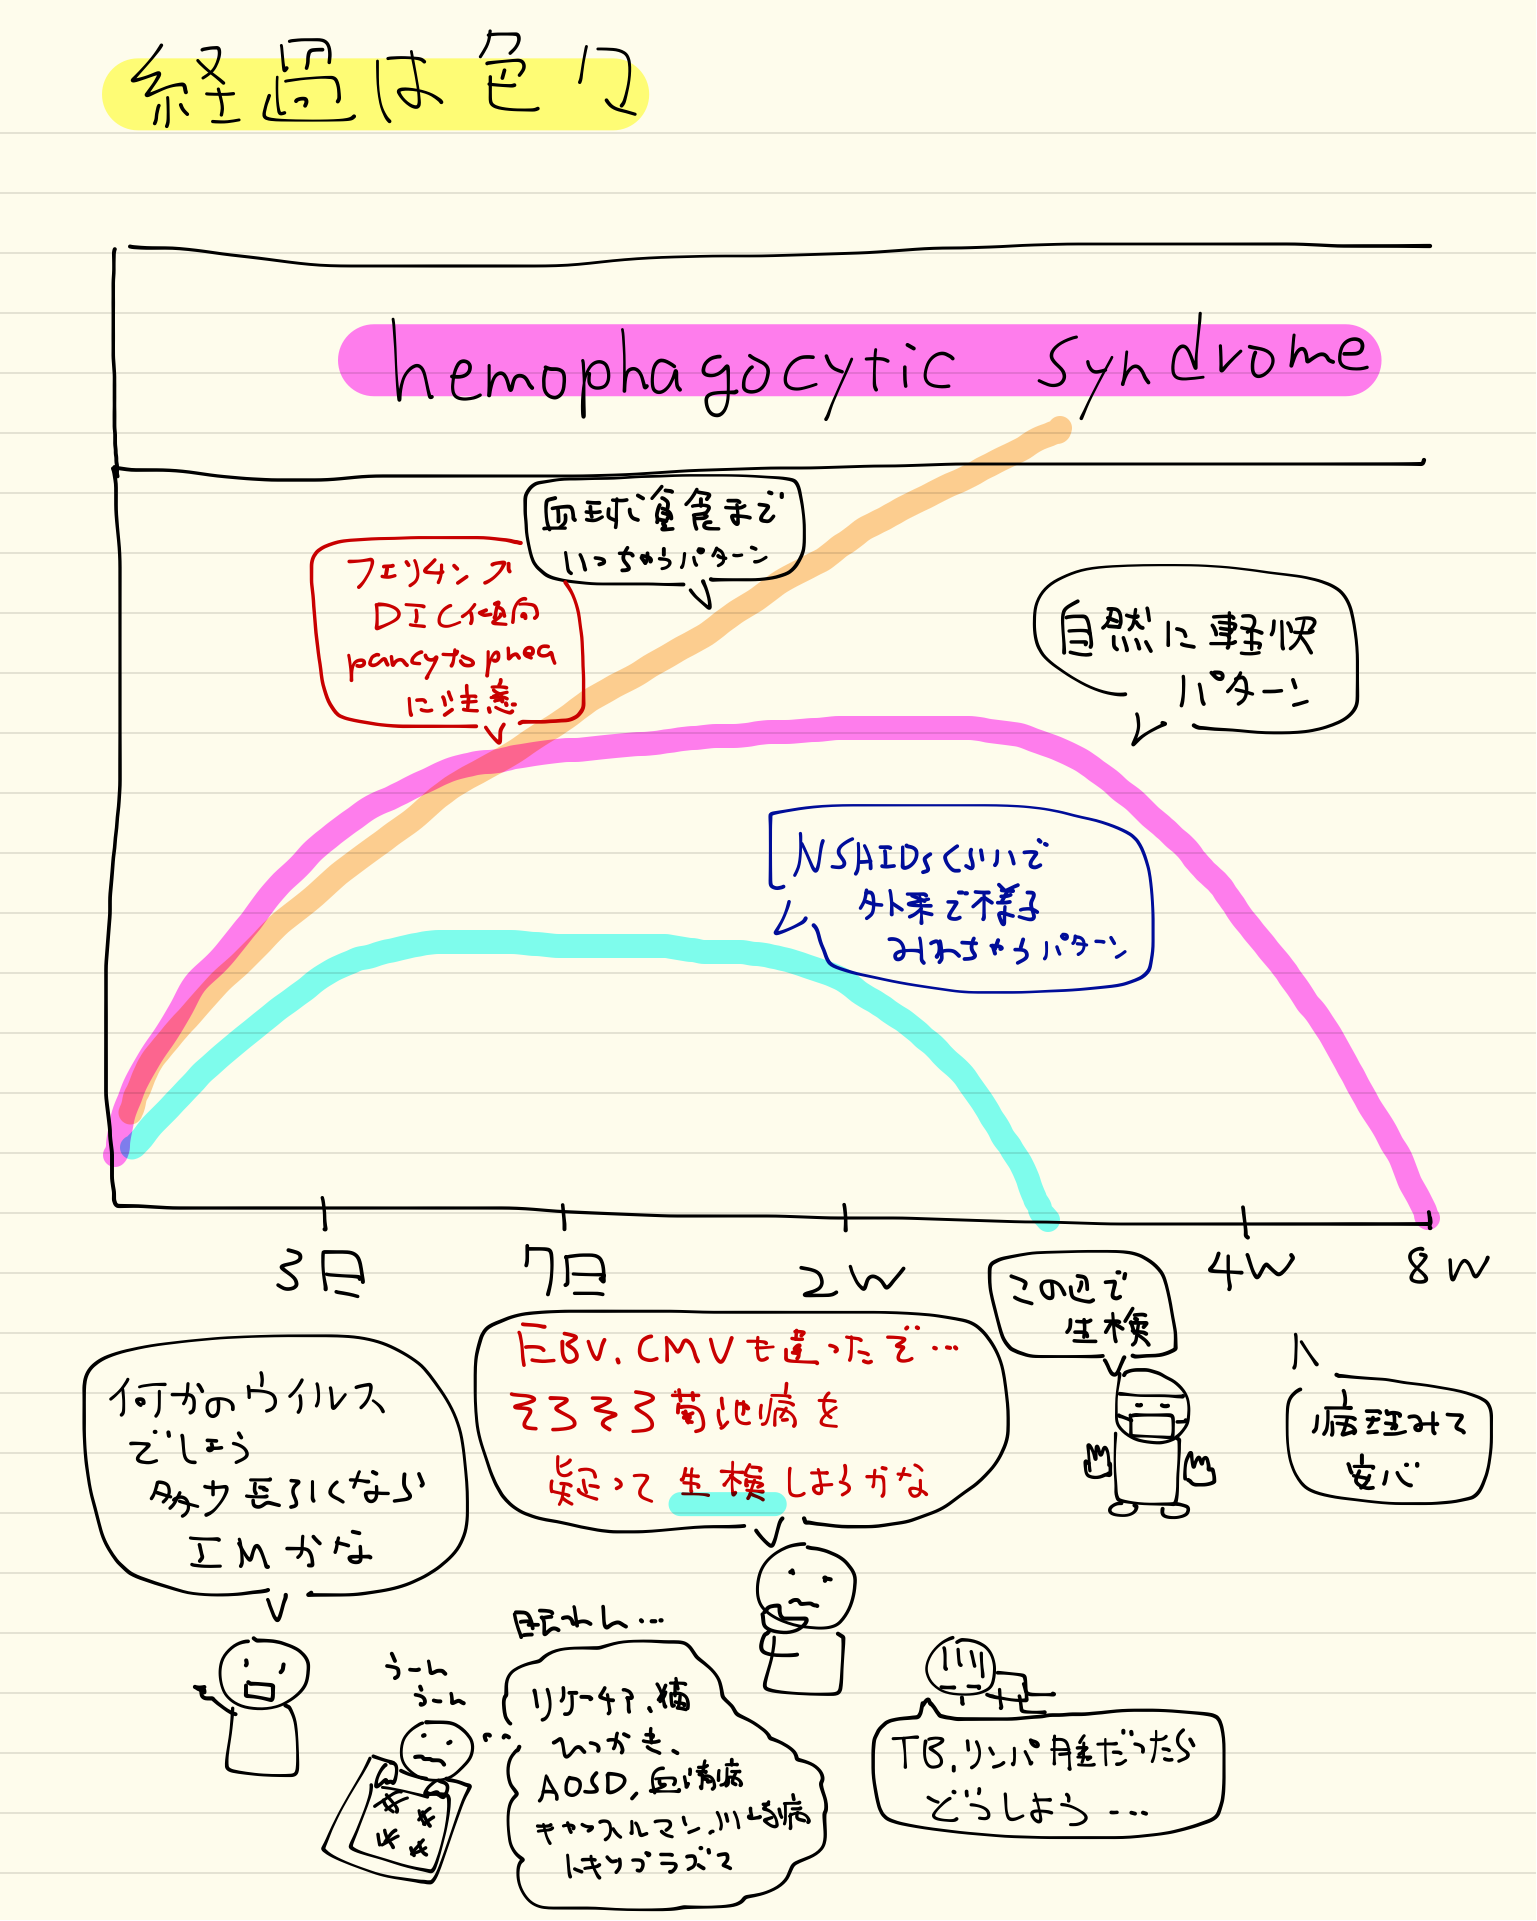 経過は色々
hemophagocytic syndrome
血球貪食まで
いっちゃうパターン
フェリチン↗
DIC傾向
pancytopnea
に注意
自然に軽快
パターン
NSAIDsくらいで
外来で様子
みれちゃうパターン
3日
7日
2W
4W
8W
この辺で
生検
何かのウイルス
でしょう
多少長引くなら
IMかな
EBV, CMVも違ったぞ…
そろそろ菊池病を
疑って生検しようかな
病理みて
安心
眠れん…
うーん
うーん
リケッチア、猫
ひっかき、
AOSD, 血清病
キャッスルマン, 川崎病
トキソプラズマ
TB, リンパ腫だったら
どうしよう…